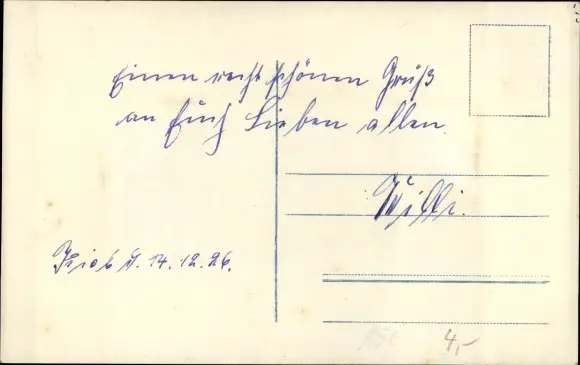 Einen recht schönen Gruß
an Euch Lieben allen.
Willi.
d. 14.12.26.
4,-